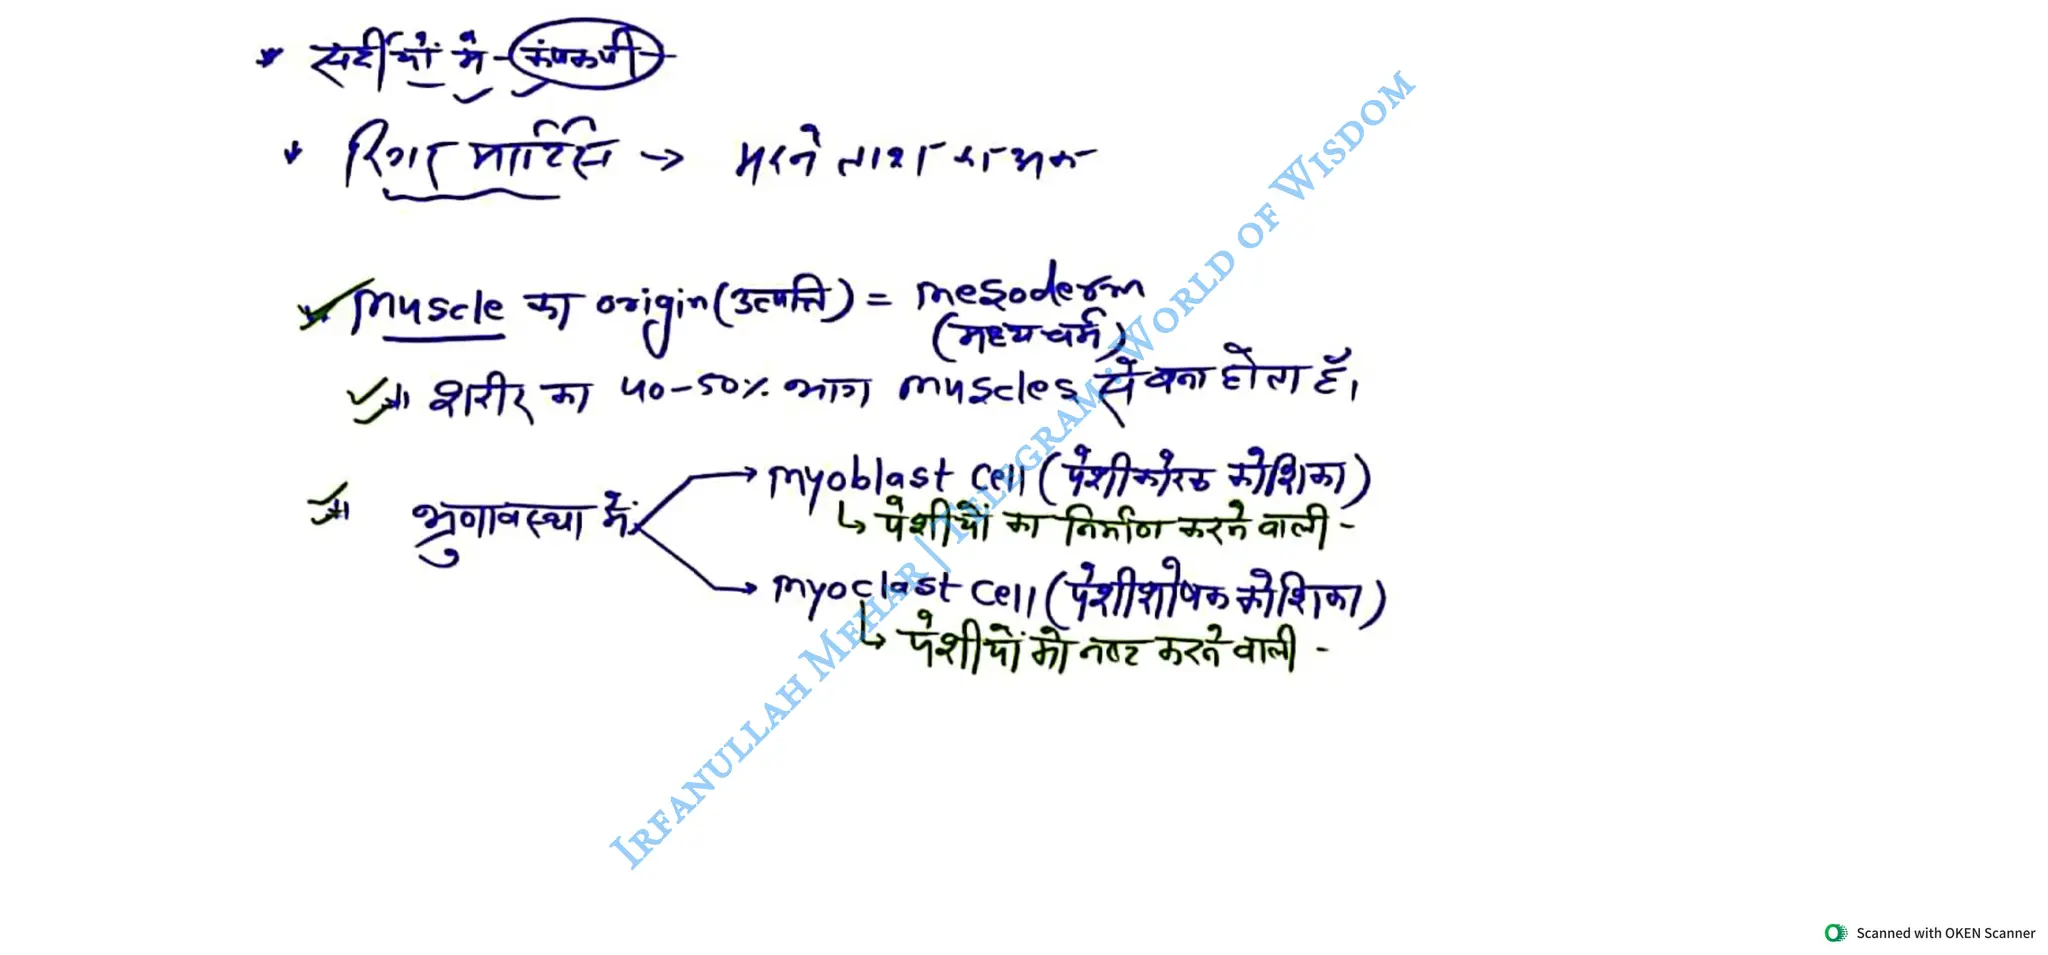 * सर्दीयों में - कंपकपी -
* रिगर मार्टिस → मरने लाश का अक
* Muscle का origin (उत्पत्ति) = mesoderm
(मध्यचर्म)
* शरीर का 40-50% भाग muscles से बना होता हैं।
* भ्रुणावस्था में
→ myoblast cell (पेशीकोरक कोशिका)
↳ पेशीयों का निर्माण करने वाली -
→ myoclast cell (पेशीशोषक कोशिका)
↳ पेशीयों को नष्ट करने वाली -
IRFANULLAH MEHAR | TELEGRAM: WORLD OF WISDOM
Scanned with OKEN Scanner